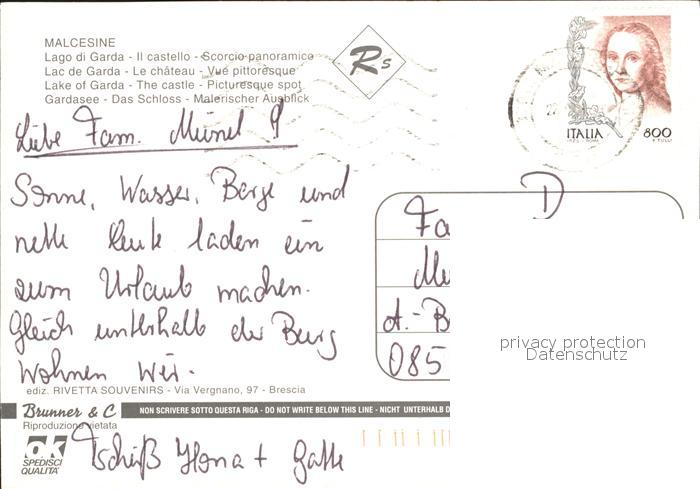 MALCESINE
Lago di Garda - Il castello - Scorcio panoramico
Lac de Garda - Le château - Vue pittoresque
Lake of Garda - The castle - Picturesque spot
Gardasee - Das Schloss - Malerischer Ausblick
Rs
ITALIA 800
Liebe Fam.
Sonne, Wasser, Berge und
nette Leute laden ein
zum Urlaub machen.
Gleich unterhalb der Burg
wohnen wir.
D
Fa
Mü
A.-B
085
privacy protection
Datenschutz
ediz. RIVETTA SOUVENIRS - Via Vergnano, 97 - Brescia
Brunner & C
NON SCRIVERE SOTTO QUESTA RIGA - DO NOT WRITE BELOW THIS LINE - NICHT UNTERHALB D
Riproduzione vietata
ok
SPEDISCI
QUALITA'
Tschüß + Gatte